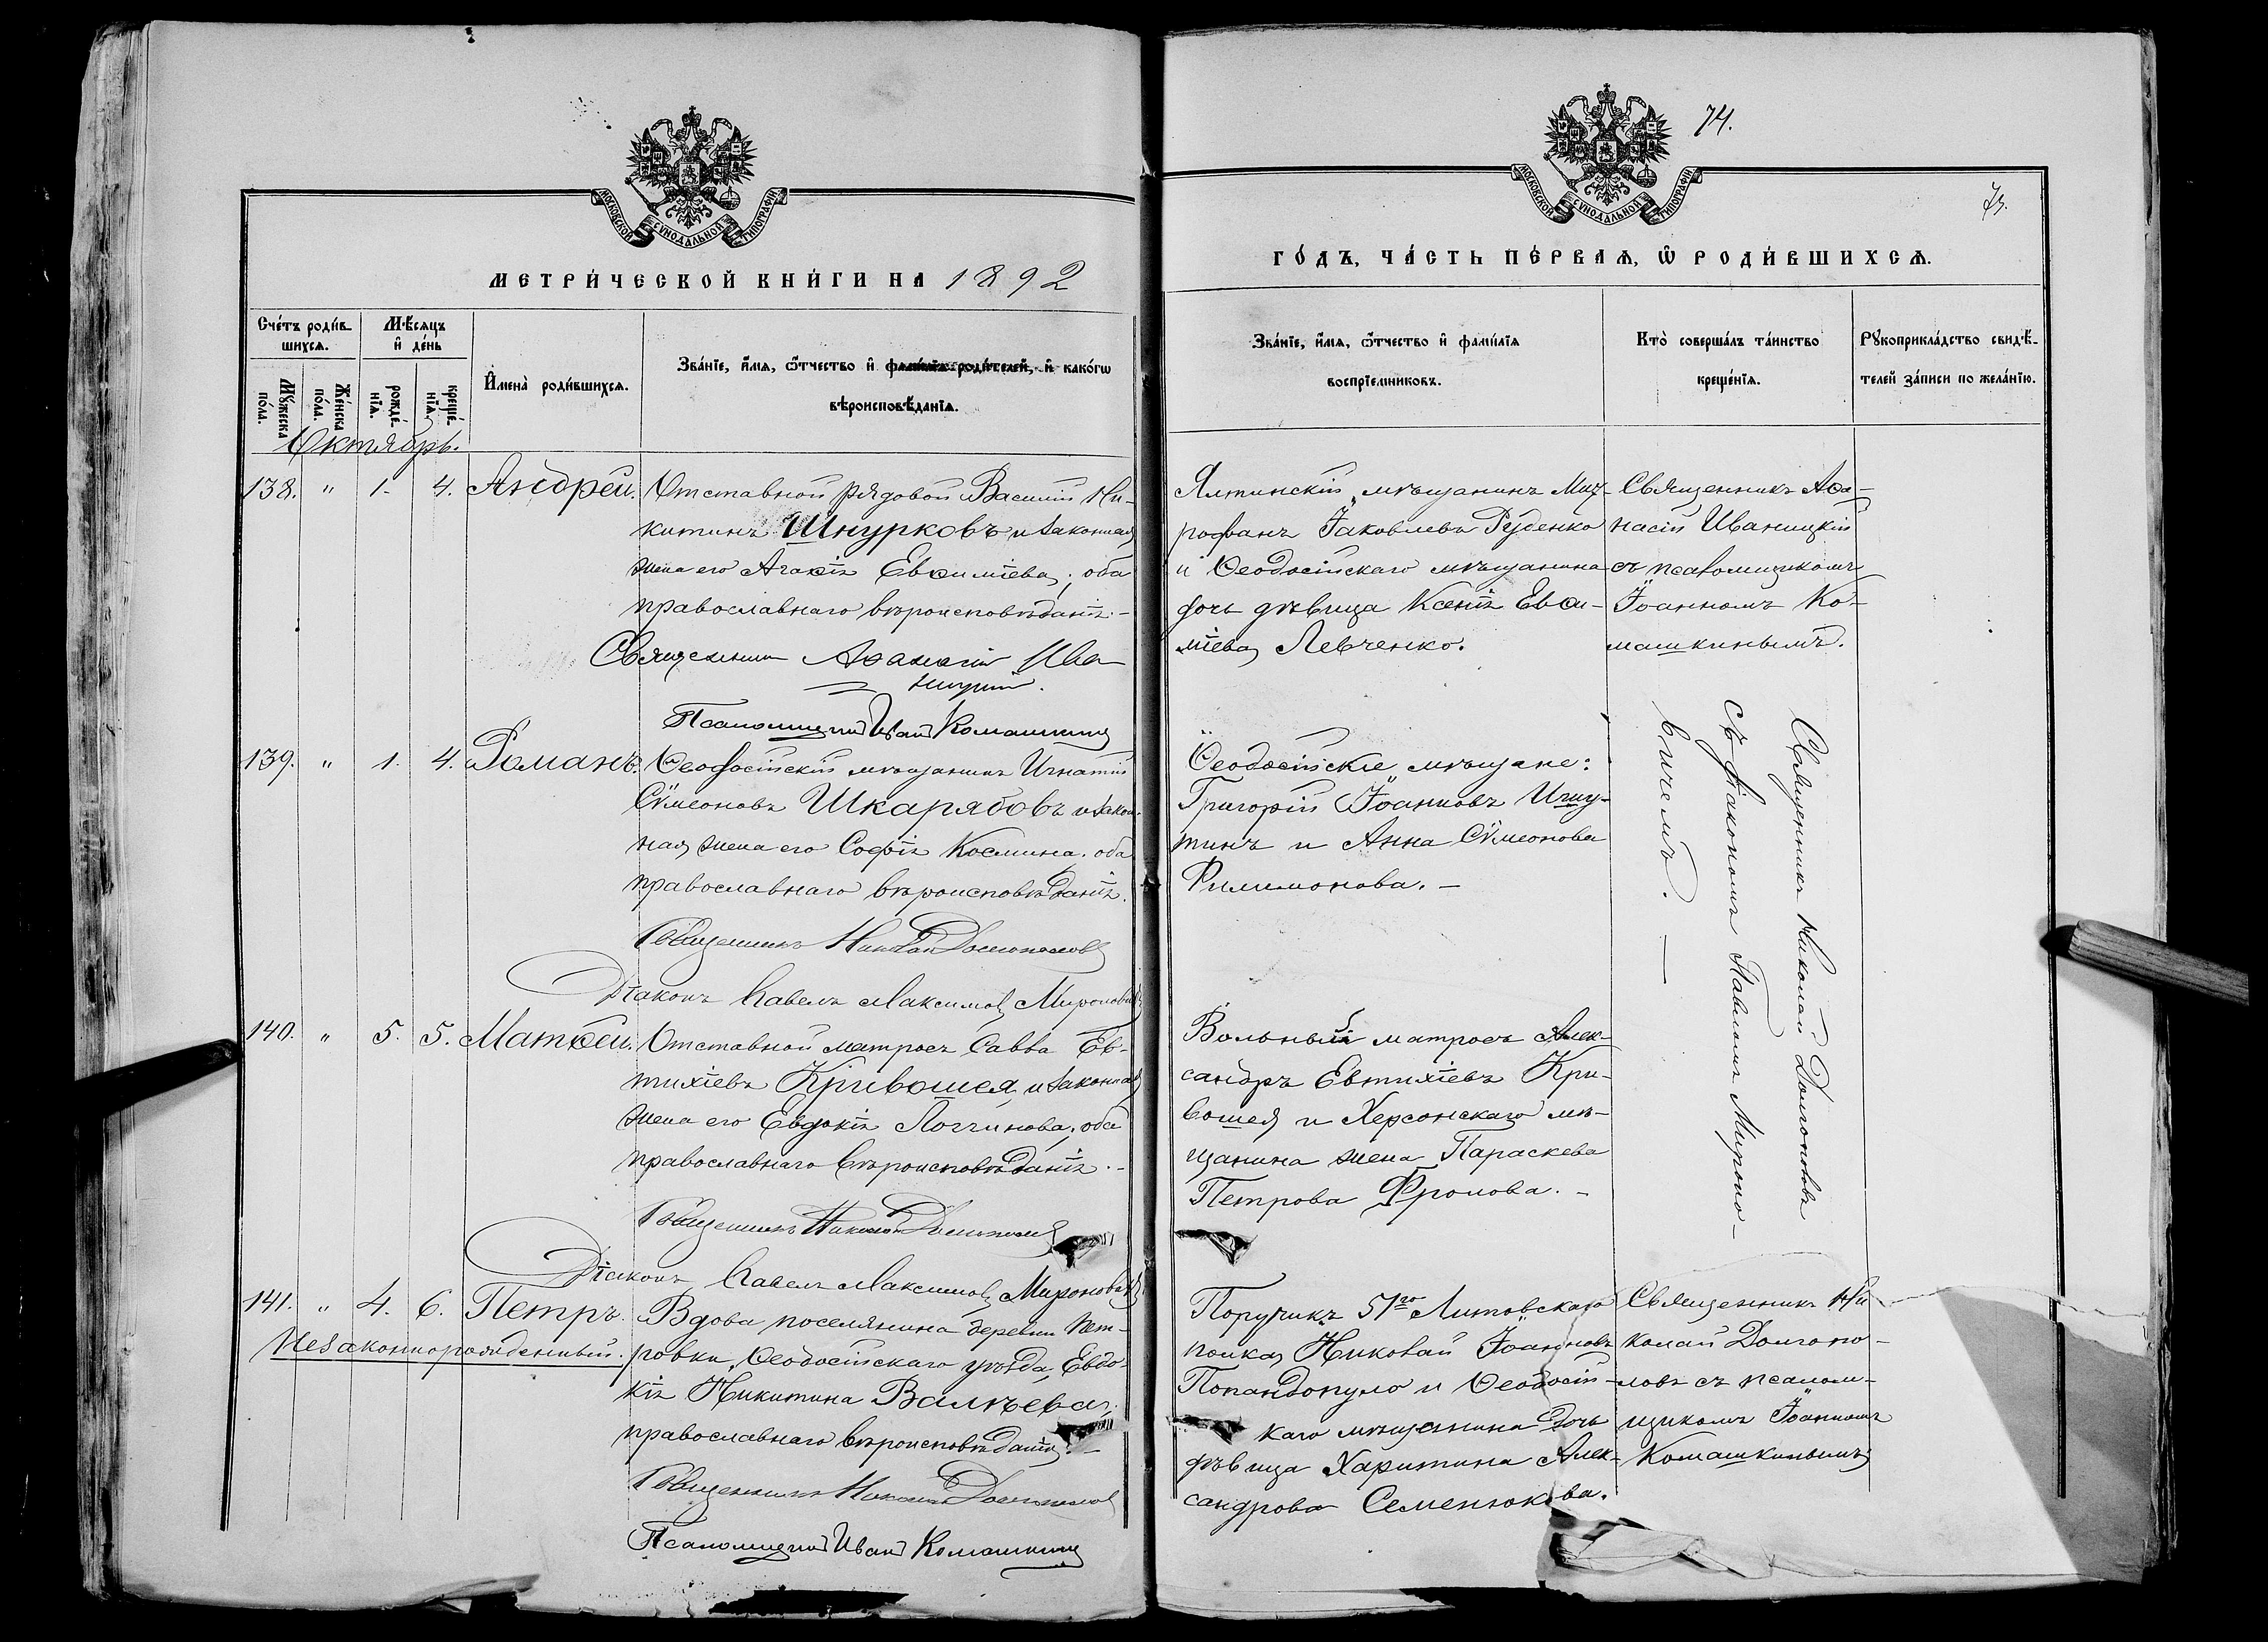 МОСКОВСКОЙ СѴНОДАЛЬНОЙ ТИПОГРАФІИ
МЕТРИ́ЧЕСКОЙ КНИ́ГИ НА 1892
Сче́тъ роди́в-
шихсѧ.
Мѣ́сѧцъ
и҆ де́нь
Мꙋ́жеска
по́ла.
Же́нска
по́ла.
рожде́-
нїѧ.
креще́-
нїѧ.
И҆мена̀ роди́вшихсѧ.
Зва́нїе, и҆́мѧ, ѻ҆́тчество и҆ фами́лїѧ роди́телей, и҆ како́гѡ
вѣроисповѣ́данїѧ.
Октябрь.
138. " 1. 4. Андрей. Отставной рядовой Василій Ни-
китинъ Шнурковъ и законная
жена его Агаѳія Евѳиміева; оба
православнаго вѣроисповѣданія. -
Священникъ Аѳанасій Ива-
ницкій.
Псаломщикъ Иван Комашкинъ
139. " 1. 4. Романъ. Ѳеодосійскій мѣщанинъ Игнатій
Сѵмеоновъ Шкарябовъ и закон-
ная жена его Софія Космина. оба
православнаго вѣроисповѣданія.
Священникъ Николай Долгополовъ
Діаконъ Павелъ Максимовъ Мироновичъ
140. " 5. 5. Матѳей. Отставной матросъ Савва Ев-
тихіевъ Кривошея, и законная
жена его Евдокія Логгинова; оба
православнаго вѣроисповѣданія. -
Священникъ Николай Долгополовъ
Діаконъ Павелъ Максимовъ Мироновичъ
141. " 4. 6. Петръ. Вдова поселянина деревни Пет-
Незаконнорожденный. ровки, Ѳеодосійскаго уѣзда, Евдо-
кія Никитина Валѣева,
православнаго вѣроисповѣданія. -
Священникъ Николай Долгополовъ
Псаломщикъ Иван Комашкинъ
74.
МОСКОВСКОЙ СѴНОДАЛЬНОЙ ТИПОГРАФІИ
ГО́ДЪ, ЧА́СТЬ ПЕ́РВАѦ, Ѡ҆ РОДИ́ВШИХСѦ.
Зва́нїе, и҆́мѧ, ѻ҆́тчество и҆ фами́лїѧ
воспрїе́мниковъ.
Кто̀ соверша́лъ та́инство
креще́нїѧ.
Рꙋкоприкла́дство свидѣ́-
телей за́писи по жела́нїю.
Ялтинскій мѣщанинъ Мит-
рофанъ Іаковлевъ Руденко
и Ѳеодосійскаго мѣщанина
дочь дѣвица Ксенія Евѳи-
міева Левченко.
Священникъ Аѳа-
насій Иваницкій
съ псаломщикомъ
Іоанномъ Ко-
машкинымъ.
Ѳеодосійскіе мѣщане:
Григорій Іоанновъ Игну-
тинъ и Анна Сѵмеонова
Филимонова. -
Священникъ Николай Долгополовъ
съ діакономъ Павломъ Мироно-
вичемъ. -
Вольный матросъ Алек-
сандръ Евтихіевъ Кри-
вошея и Херсонскаго мѣ-
щанина жена Параскева
Петрова Фролова. -
Поручикъ 51го Литовскаго
полка, Николай Іоанновъ
Попандопуло и Ѳеодосій-
каго мѣщанина дочь
дѣвица Харитина Алек-
сандрова Семенюкова.
Священникъ Ни-
колай Долгопо-
ловъ съ псалом-
щикомъ Іоанномъ
Комашкинымъ